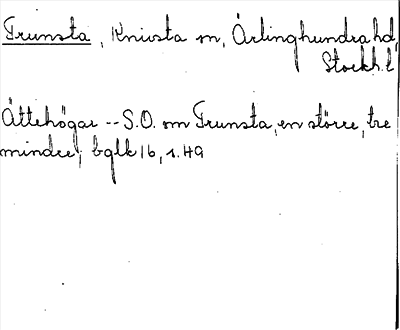 Trunsta, Knivsta sn, Ärlinghundra hd,
Stockh. l
Ättehögar -- S.O. om Trunsta, en större, tre
mindre; bglk 16, s. 49